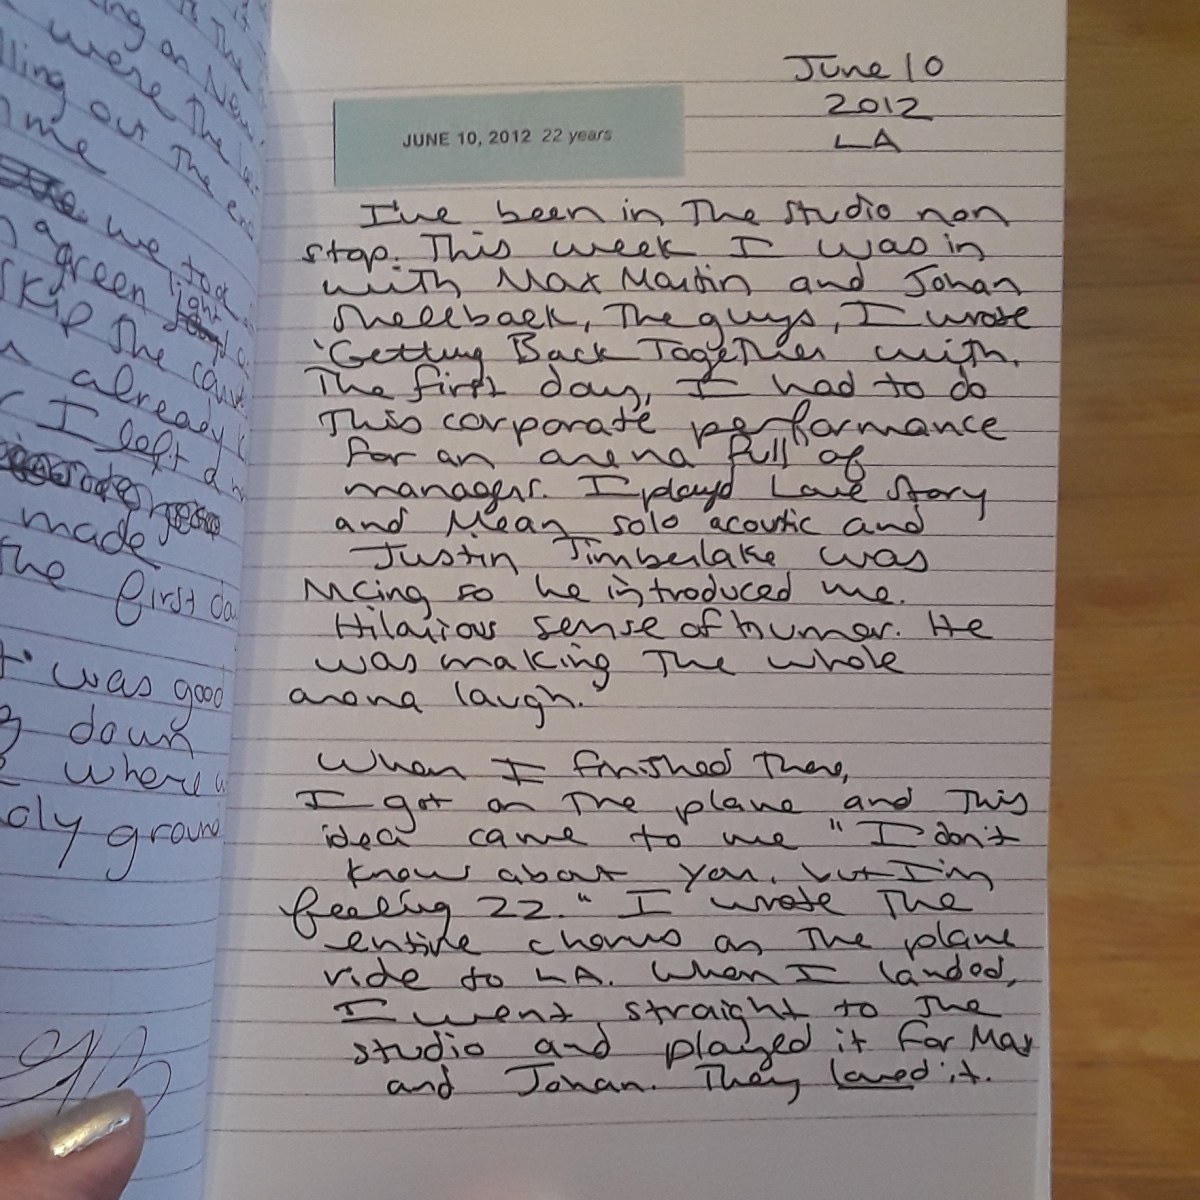 ing on Now.
were The
lling out The end
me
we took
a green light
skip The
already
I left
made
The first da
it was good
down
where
oly ground
June 10
2012
LA
JUNE 10, 2012 22 years
I've been in The studio non
stop. This week I was in
with Max Martin and Johan
Shellback, The guys, I wrote
'Getting Back Together with.
The first day, I had to do
This corporate performance
for an arena full of
managers. I playd Love Story
and Mean solo acoustic and
Justin Timberlake was
Mcing so he introduced me.
Hilarious sense of humor. He
was making The whole
arena laugh.
When I finished There,
I got on The plane and This
idea came to me "I don't
know about you, but I'm
feeling 22." I wrote The
entire chorus on The plane
ride to LA. When I landed,
I went straight to The
studio and played it for Max
and Johan. They loved it.